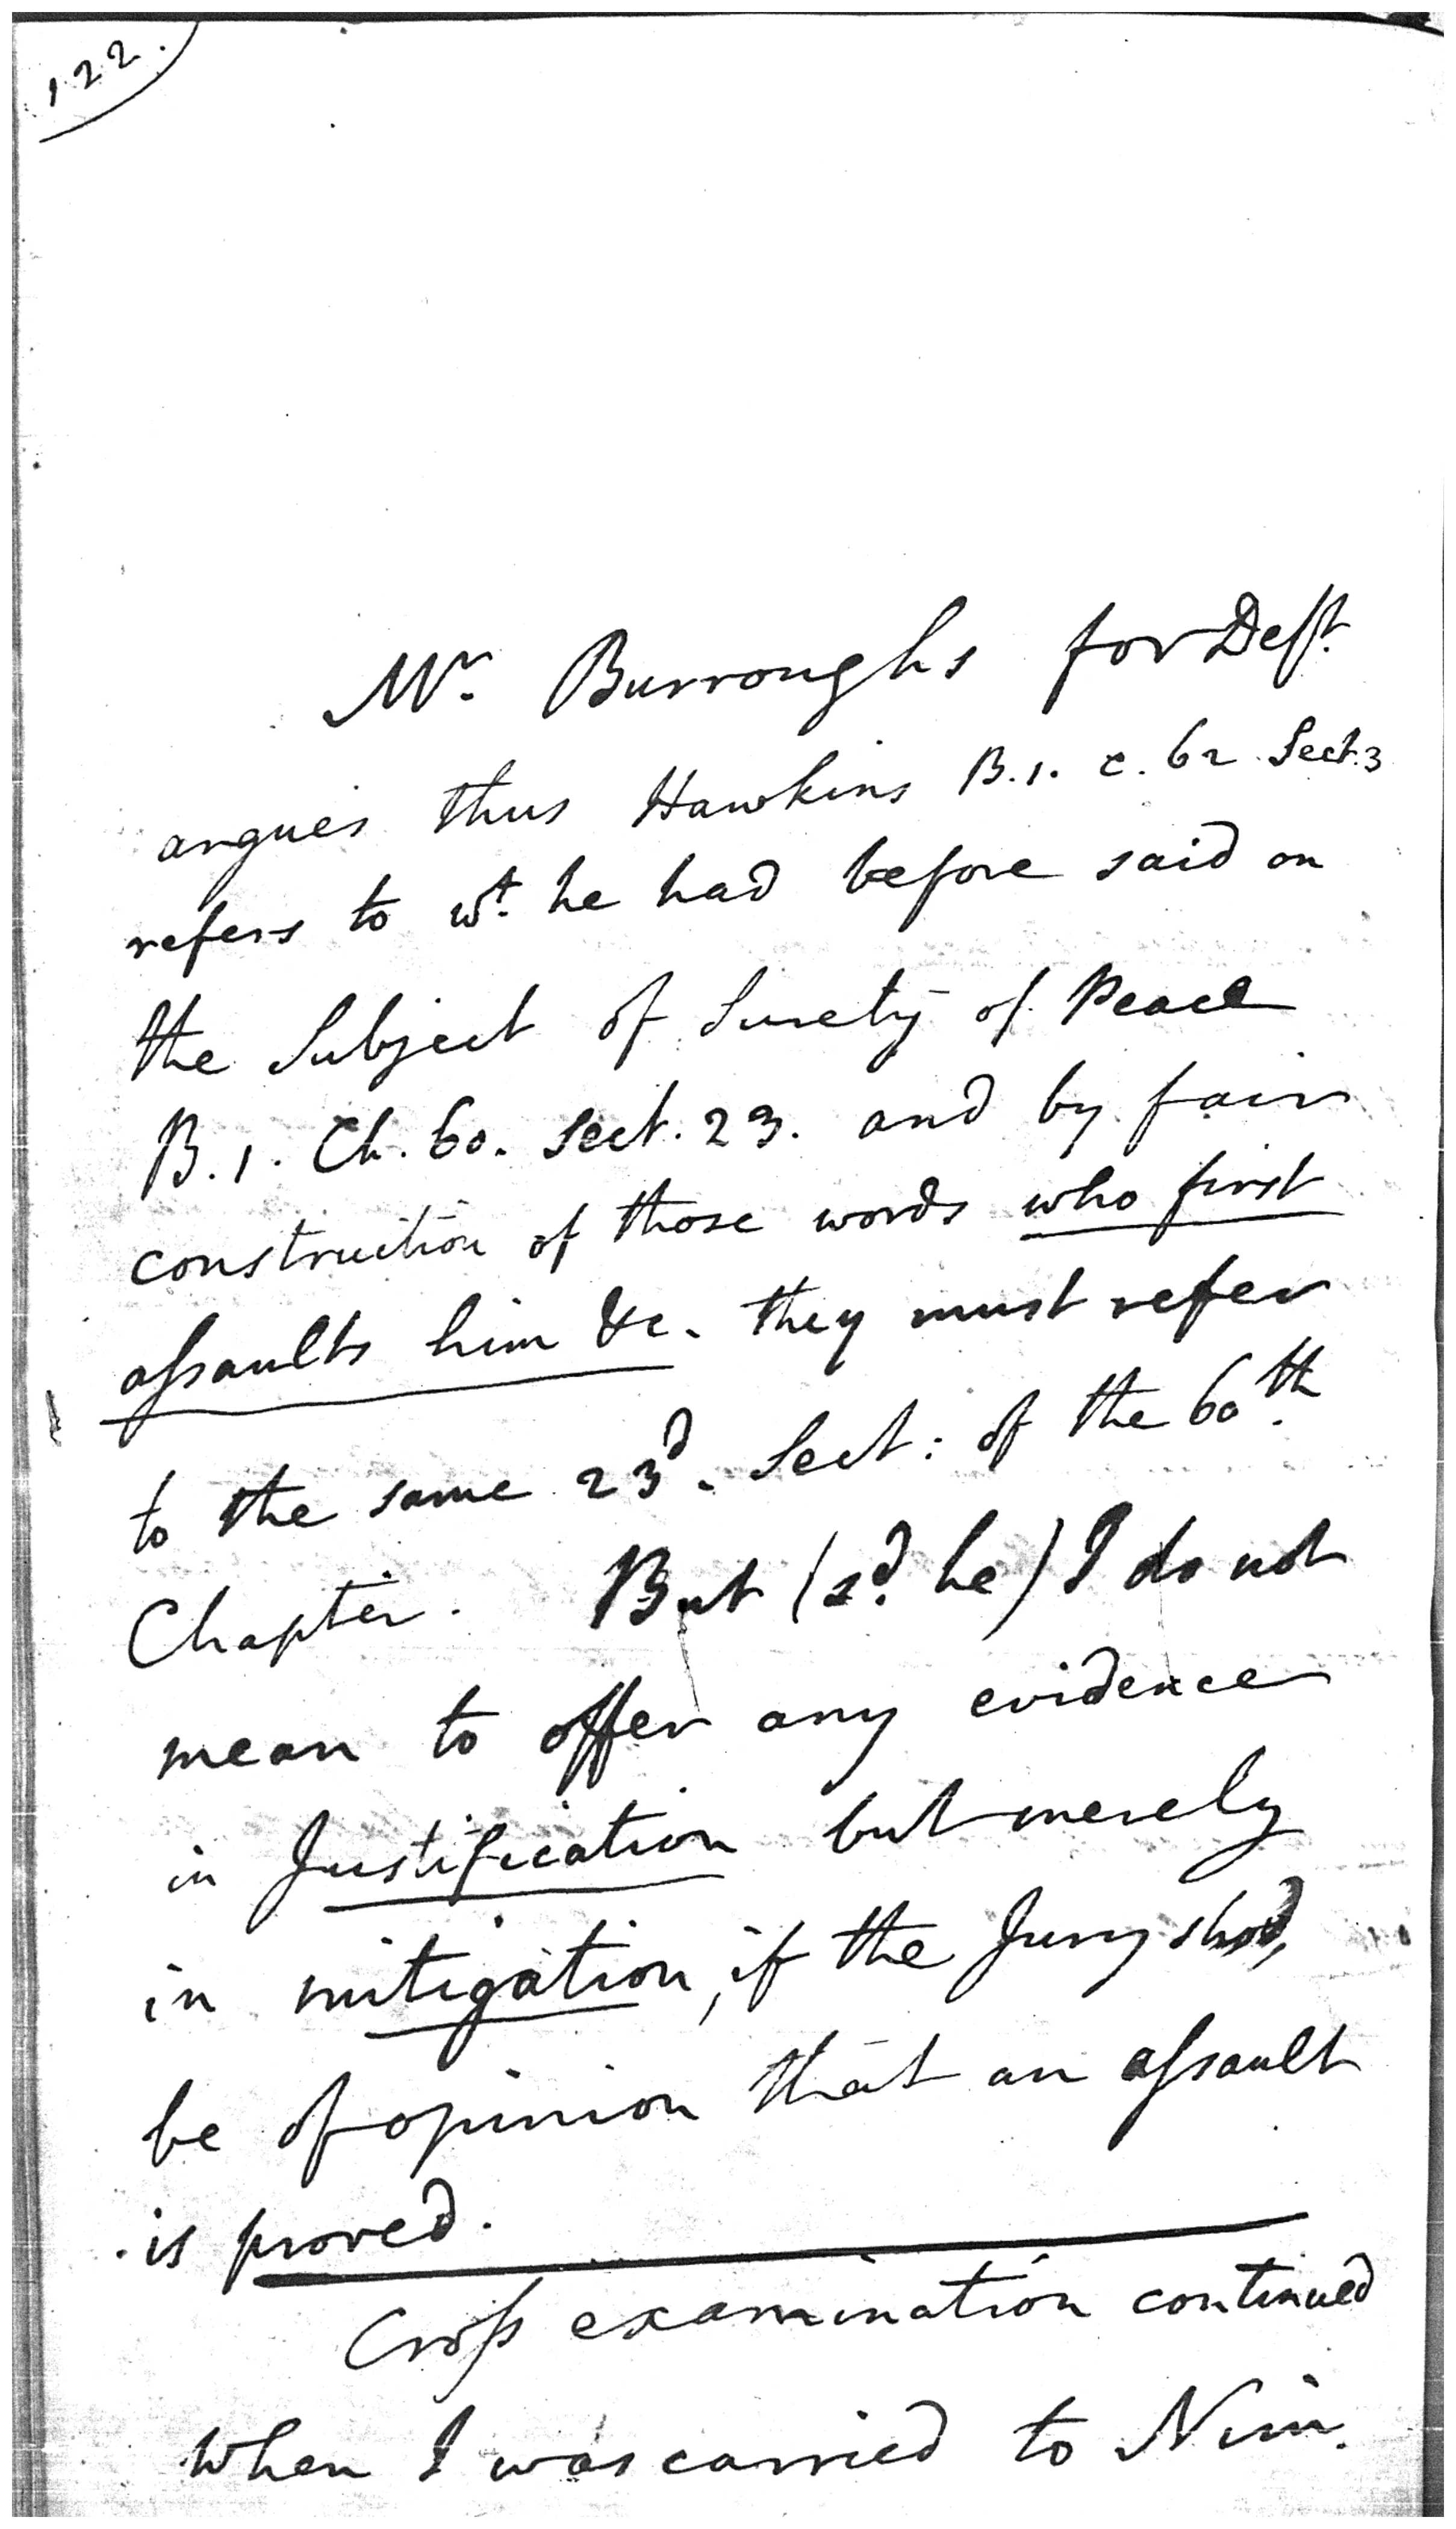 122.
Mr. Burroughs for Deft.
argues thus Hawkins B.1. c. 62 Sect. 3
refers to wt. he had before said on
the Subject of Surety of Peace
B. 1. Ch. 60. Sect. 23. and by fair
construction of those words who first
assaults him &c. they must refer
to the same 23d. Sect: of the 60th.
Chapter. But (sd. he) I do not
mean to offer any evidence
in Justification but merely
in mitigation, if the Jury shod.
be of opinion that an assault
is proved.
Cross examination continued
When I was carried to Nim.